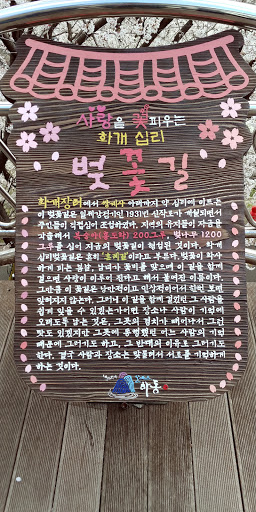 사랑을 꽃피우는
화개 십리
벚꽃길
화개장터에서 쌍계사 아래까지 약 십리에 이르는
이 벚꽃길은 일제강점기인 1931년 신작로가 개설되면서
주민들이 직접심어 조성하였다. 지역의 유지들이 자금을
갹출해서 복숭아(홍도화) 200그루, 벚나무 1200
그루를 심어 지금의 벚꽃길이 형성된 것이다. 화개
십리벚꽃길은 흔히 '혼례길'이라고 부른다. 벚꽃이 화사하
게 피는 봄날, 남녀가 꽃비를 맞으며 이 길을 함께
걸으면 사랑이 이루어 진다고 해서 붙여진 이름이다.
그만큼 이 꽃길은 낭만적이고 인상적이어서 한번 보면
잊혀지지 않는다. 그러니 이 길을 함께 걸었던 그 사람을
쉽게 잊을 수 있겠는가! 어떤 장소나 사람이 기억에
오래도록 남는 것은, 그곳의 경치가 빼어나서 그런
탓도 있겠지만 그곳에 동행했던 어느 사람의 기억
때문에 그러기도 하고, 그 반대의 이유로 그러기도
한다. 결국 사람과 장소는 맞물려서 서로를 기억하게
하는 것이다.
하동